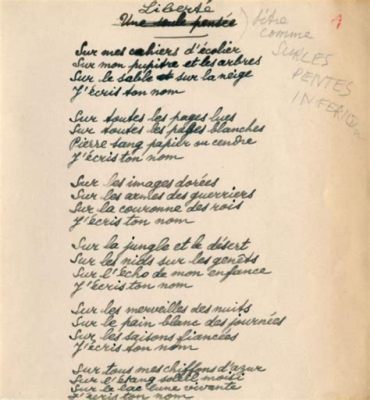 Liberté
Une seule pensée
titre
comme
SUR LES
PENTES
INFERIEU
Sur mes cahiers d'écolier
Sur mon pupitre et les arbres
Sur le sable et sur la neige
J'écris ton nom
Sur toutes les pages lues
Sur toutes les pages blanches
Pierre sang papier ou cendre
J'écris ton nom
Sur les images dorées
Sur les armes des guerriers
Sur la couronne des rois
J'écris ton nom
Sur la jungle et le désert
Sur les nids sur les genêts
Sur l'écho de mon enfance
J'écris ton nom
Sur les merveilles des nuits
Sur le pain blanc des journées
Sur les saisons fiancées
J'écris ton nom
Sur tous mes chiffons d'azur
Sur l'étang soleil moisi
Sur le lac lune vivante
J'écris ton nom